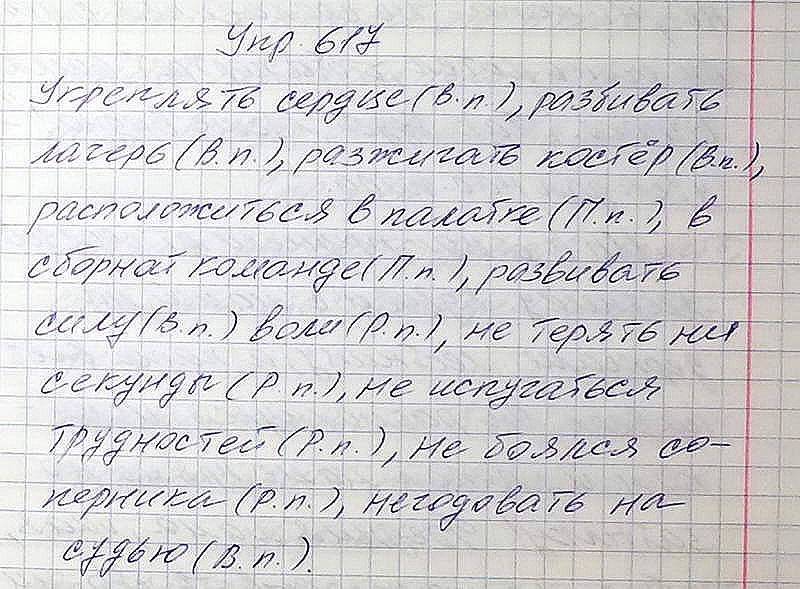 Упр. 617
Укреплять сердце (В.п.), разбивать
лагерь (В.п.), разжигать костёр (В.п.),
расположиться в палатке (П.п.), в
сборной команде (П.п.), развивать
силу (В.п.) воли (Р.п.), не терять ни
секунды (Р.п.), не испугаться
трудностей (Р.п.), не боялся со-
перника (Р.п.), негодовать на
судью (В.п.).